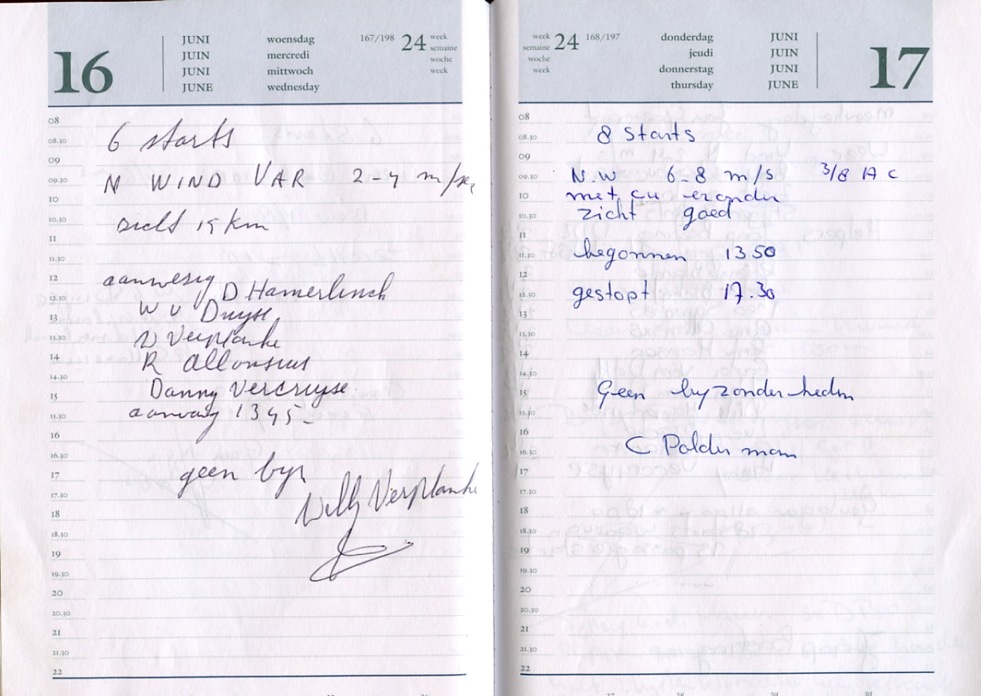 16
JUNI woensdag 167/198 24 week
JUIN mercredi semaine
JUNI mittwoch woche
JUNE wednesday week
08
08.30 6 starts
09
09.30 N WIND VAR 2-4 m/sec
10
10.30 zicht 15 km
11
11.30
12 aanwezig
12.30 D Hamerlinch
13 W v Duyse
13.30 W Verplanke
14 R
14.30 Danny Vercruyse
15
15.30 aanvang 1345
16
16.30
17 geen byz
17.30 Willy Verplanke
18
18.30
19
19.30
20
20.30
21
21.30
22
week 24 168/197 donderdag JUNI 17
semaine jeudi JUIN
woche donnerstag JUNI
week thursday JUNE
08
08.30 8 Starts
09
09.30 N.W 6-8 m/s 3/8 A c
10 met cu eronder
10.30 zicht goed
11
11.30 begonnen 1350
12
12.30 gestopt 17.30
13
13.30
14
14.30
15 Geen byzonderheden
15.30
16
16.30 C Polderman
17
17.30
18
18.30
19
19.30
20
20.30
21
21.30
22